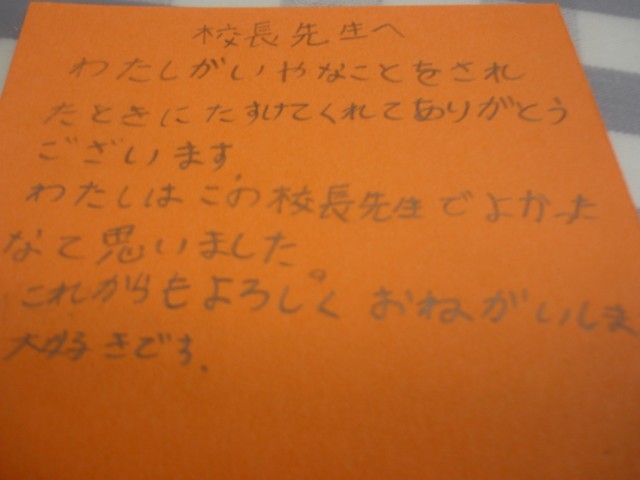 校長先生へ
わたしがいやなことをされ
たときにたすけてくれてありがとう
ございます。
わたしはこの校長先生でよかった
なて思いました。
これからもよろしくおねがいしま
大好きです.